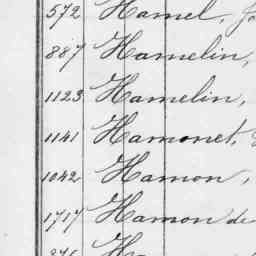 572 Hamel,
887 Hamelin,
1123 Hamelin,
1141 Hamonet,
1042 Hamon,
1717 Hamon de